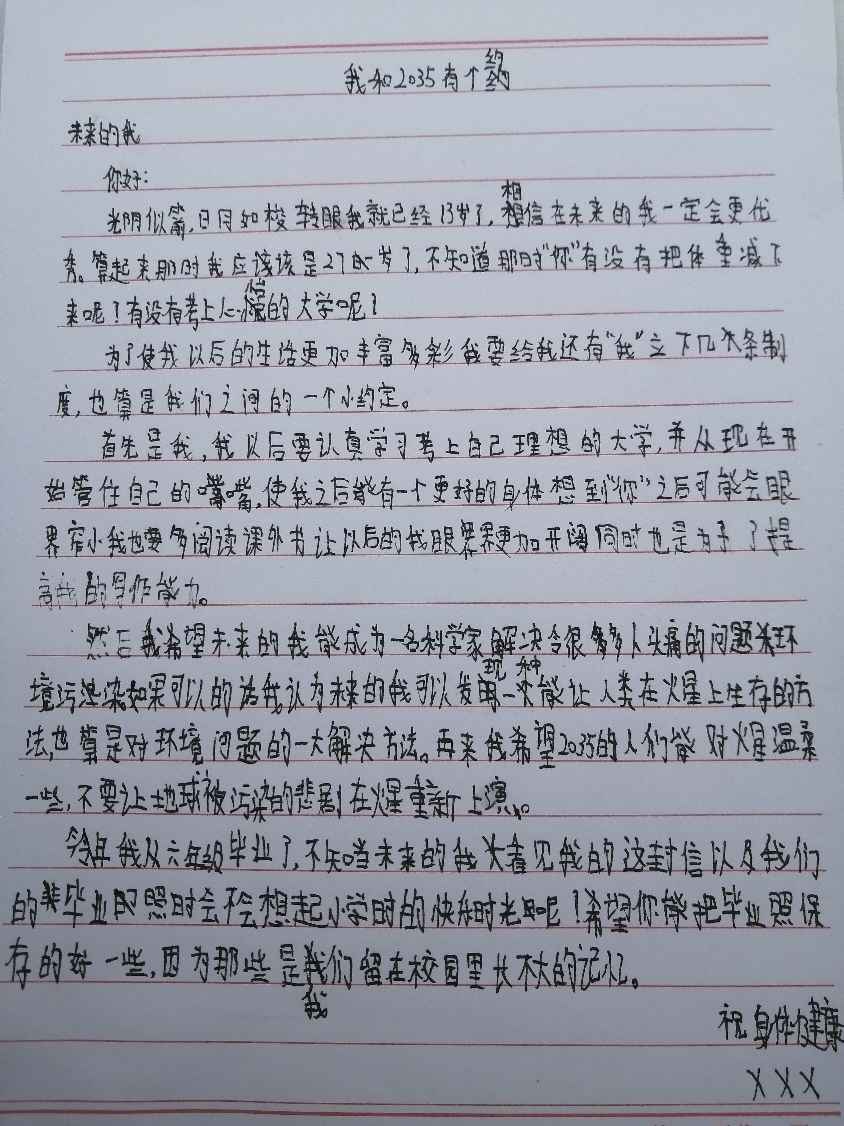 我和2035有个约
未来的我
你好:
光阴似箭,日月如梭转眼我就已经13岁了,相信在未来的我一定会更优
秀。算起来那时我应该该是27岁了,不知道那时"你"有没有把体重减下
来呢?有没有考上心怡的大学呢?
为了使我以后的生活更加丰富多彩我要给我还有"我"立下几条制
度,也算是我们之间的一个小约定。
首先是我,我以后要认真学习考上自己理想的大学,并从现在开
始管住自己的嘴,使我之后能有一个更好的身体想到"你"之后可能会眼
界窄小我也要多阅读课外书让以后的我眼界更加开阔同时也是为了提
高我的写作能力。
然后我希望未来的我能成为一名科学家解决令很多人头痛的问题环
境污染如果可以的话我认为未来的我可以发现一种能让人类在火星上生存的方
法,也算是对环境问题的一大解决方法。再来我希望2035的人们能对火星温柔
一些,不要让地球被污染的悲剧在火星重新上演。
今年我从六年级毕业了,不知当未来的我看见我的这封信以及我们
的毕业照时会不会想起小学时的快乐时光呢?希望你能把毕业照保
存的好一些,因为那些是我们留在校园里长不大的记忆。
祝身体健康
XXX